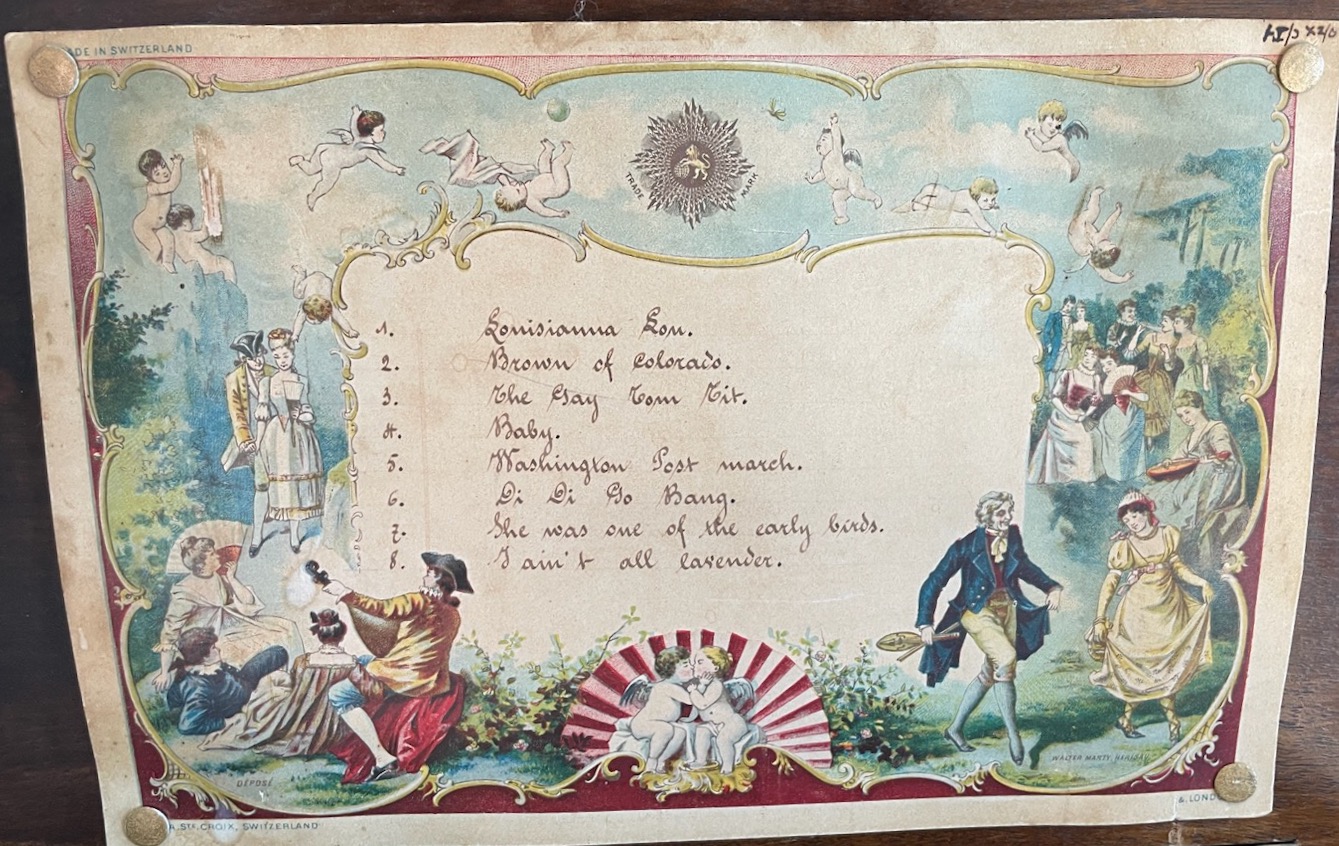 ADE IN SWITZERLAND
TRADE MARK
1. Louisianna Lou.
2. Brown of Colorado.
3. The Gay Tom Tit.
4. Baby.
5. Washington Post march.
6. Di Di Go Bang.
7. She was one of the early birds.
8. I ain't all lavender.
DÉPOSÉ
WALTER MARTY, HERISAU
STE. CROIX, SWITZERLAND
& LOND